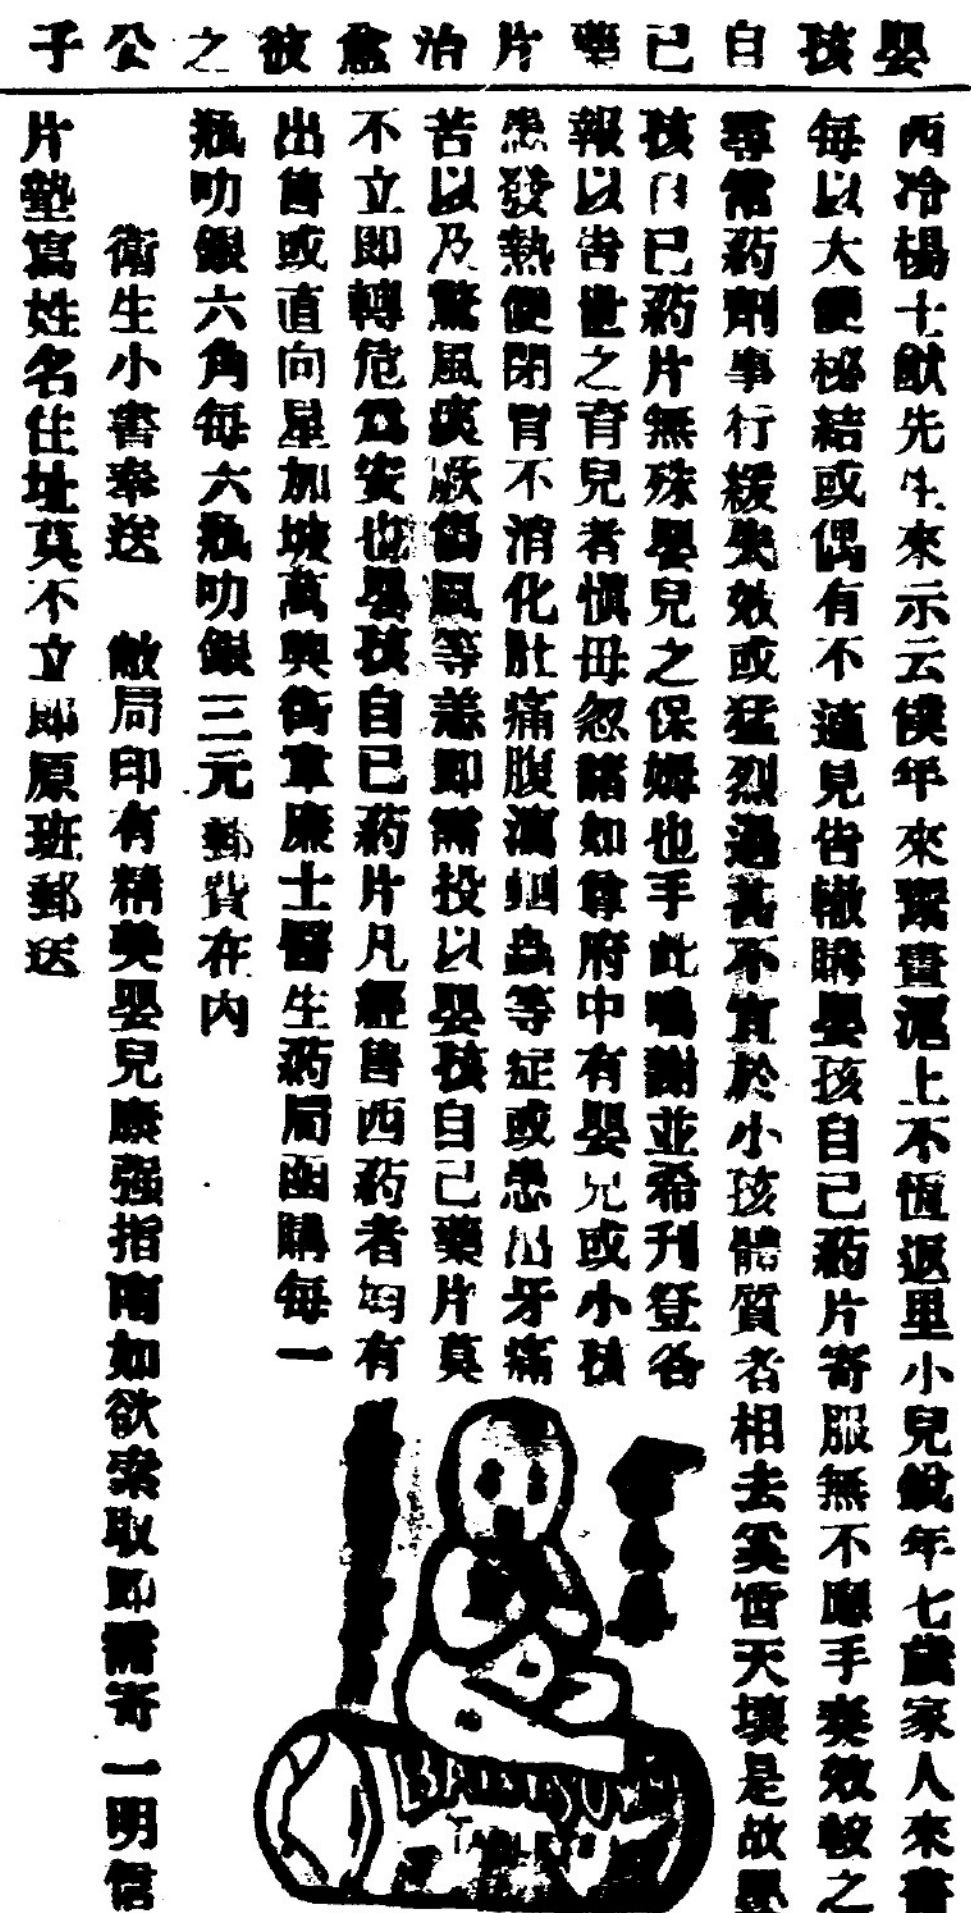 嬰孩自己藥片治愈彼之公子
西冷楊士猷先生來示云僕年來蹤晝滬上不恆返里小兒銳年七歲家人來書
每以大便秘結或偶有不適見告轍購嬰孩自己药片寄服無不應手奏效較之
尋常药劑事行緩失效或猛烈過甚不宜於小孩體質者相去奚啻天壤是故嬰
孩自已药片無殊嬰兒之保姆也手此鳴謝並希刊登各
報以告世之育兒者愼毋忽諸如尊府中有嬰兒或小孩
患發熱便閉胃不消化肚痛腹瀉蛔蟲等症或患出牙痛
苦以及驚風痰厥傷風等恙即需投以嬰孩自己藥片莫
不立即轉危爲安也嬰孩自已药片凡經售西药者均有
出售或直向星加坡萬興街韋廉士醫生药局函購每一
瓶叻銀六角每六瓶叻銀三元郵費在內
衛生小書奉送 敝局印有精美嬰兒康强指南如欲索取即需寄一明信
片墊寫姓名住址莫不立即原班郵送